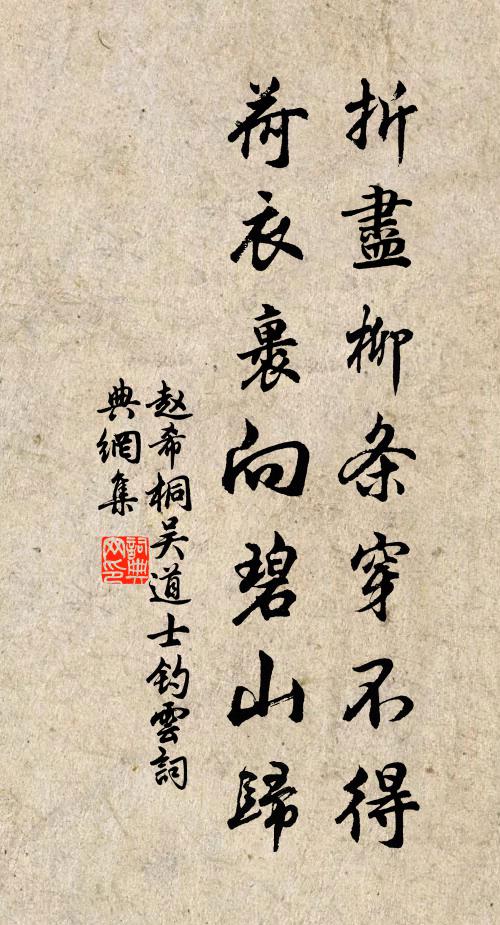 折盡柳条穿不得
荷衣裹向碧山歸
赵希桐吴道士钓雲詞
典網集
詞典
网印